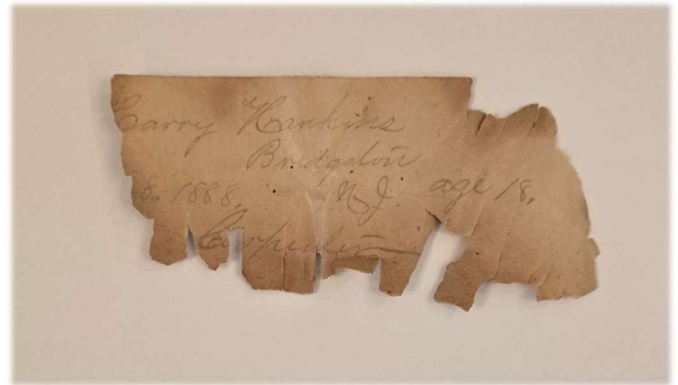 Harry Hankins
Bridgeton
8. 1888. N.J. age 18.
Carpenter